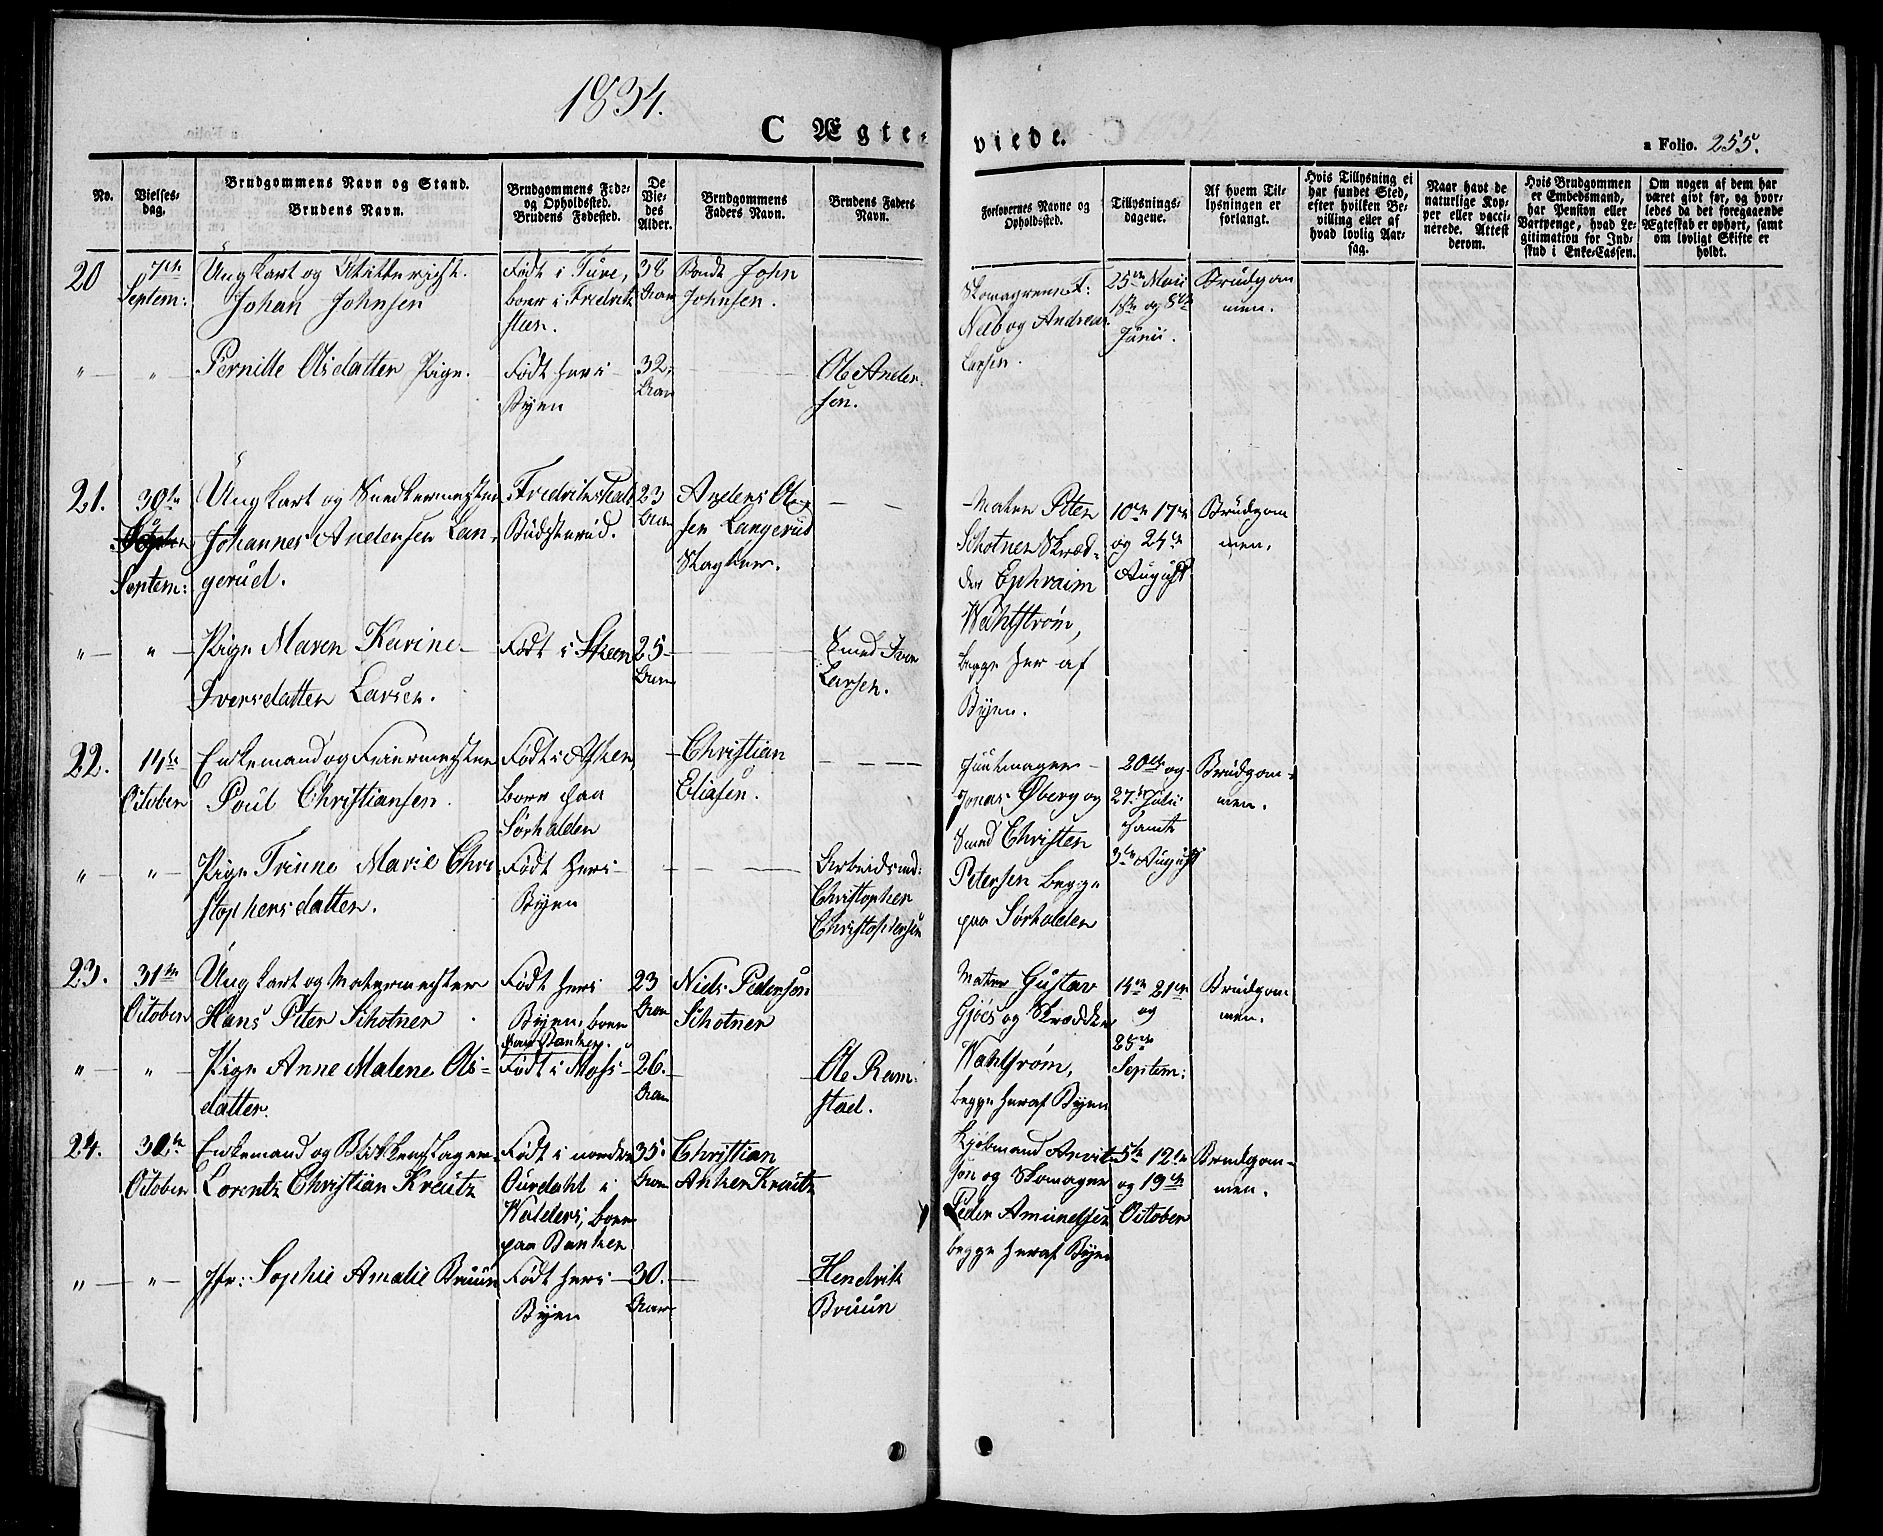 1834.
C Ægte-
viede.
a Folio. 255.
No.
Vielses-
dag.
Brudgommens Navn og Stand.
Brudens Navn.
Brudgommens Føde-
og Opholdssted.
Brudens Fødested.
De
Vie-
des
Alder.
Brudgommens
Faders Navn.
Brudens Faders
Navn.
Forlovernes Navne og
Opholdssted.
Tillysnings-
dagene.
Af hvem Til-
lysningen er
forlangt.
Hvis Tillysning ei
har fundet Sted,
efter hvilken Be-
villing eller af
hvad lovlig Aar-
sag.
Naar havt de
naturlige Kop-
per eller vacci-
nerede. Attest
derom.
Hvis Brudgommen
er Embedsmand,
har Pension eller
Vartpenge, hvad Le-
gitimation for Ind-
skud i Enke-Cassen.
Om nogen af dem har
været givt før, og hvor-
ledes da det foregaaende
Ægteskab er ophørt, samt
om lovligt Skifte er
holdt.
20
7de
Septem:
Ungkarl og
Johan Johnsen
Født i Ture,
boer i Fredrik
steen.
38
Aar
Bonde John
Johnsen.
Skomagerne
Næb og Andreas
Larsen.
25de Maii
1ste og 8de
Junii.
Brudgom
men.
" — "
Pernille Olsdatter Pige.
Født her i
Byen
32
Aar
Ole Ander-
sen.
21.
30te
Septem:
Ungkarl og Snedkermester
Johannes Andersen Lan-
gerud.
Fredrikshald
23
Aar
Anders Ol-
sen Langerud
— —
Maler Peter
Schotner Skræd-
der Ephraim
Wahlstrøm,
begge her af
Byen.
10de 17de
og 24de
August
Brudgom
men.
" "
Pige Maren Karine
Iversdatter Larsen.
Født i Skeen
25
Aar
Smed Iver
Larsen.
22.
14de
October
Enkemand og Feiermester
Poul Christiansen.
Født i Asker,
boer paa
Sørhalden
Christian
Eliasen.
— —
Jonas Øberg og
Smed Christen
Petersen begge
paa Sørhalden
20de og
27de Julii
samt
3die August
Brudgom-
men.
" — "
Pige Trinne Marie Chri
stophersdatter.
Født her i
Byen
Arbeidsmd:
Christopher
Christophersen
23.
31te
October
Ungkarl og Malermester
Hans Peter Schotner
Født her i
Byen, boer
paa Banken.
23
Aar
Niels Pedersen
Schotner
Maler Gustav
Gjöes og Skrædder
Wahlstrøm,
begge her af Byen
14de 21de
og
28de
Septem:
Brudgom
men.
" — "
Pige Anne Malene Ols-
datter.
Født i Moss
26.
Aar
Ole Ram-
stad.
24.
30te
October
Enkemand og Blikkenslager
Lorentz Christian Kreutz
Født i nordre
Ourdahl i
Walders, boer
paa Banken
35
Aar
Christian
Anker Kreutz
Kjøbmand Arvit-
son og Skomager
Peder Amundsen
begge her af Byen
5te 12te
og 19de
October
Brudgom-
men.
" — "
Jfr: Sophie Amalie Bruun
Født her i
Byen
30.
Aar
Hendrik
Bruun